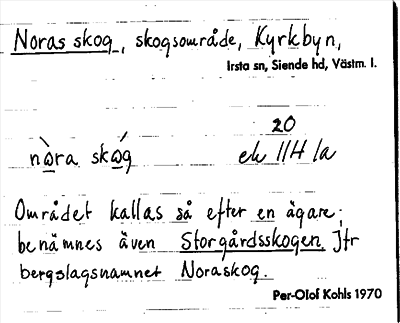 Noras skog, skogsområde, Kyrkbyn,
Irsta sn, Siende hd, Västm. l.
20
nòra skóg ek 11H 1a
Området kallas så efter en ägare;
benämnes även Storgårdsskogen. Jfr
bergslagsnamnet Noraskog.
Per-Olof Kohls 1970